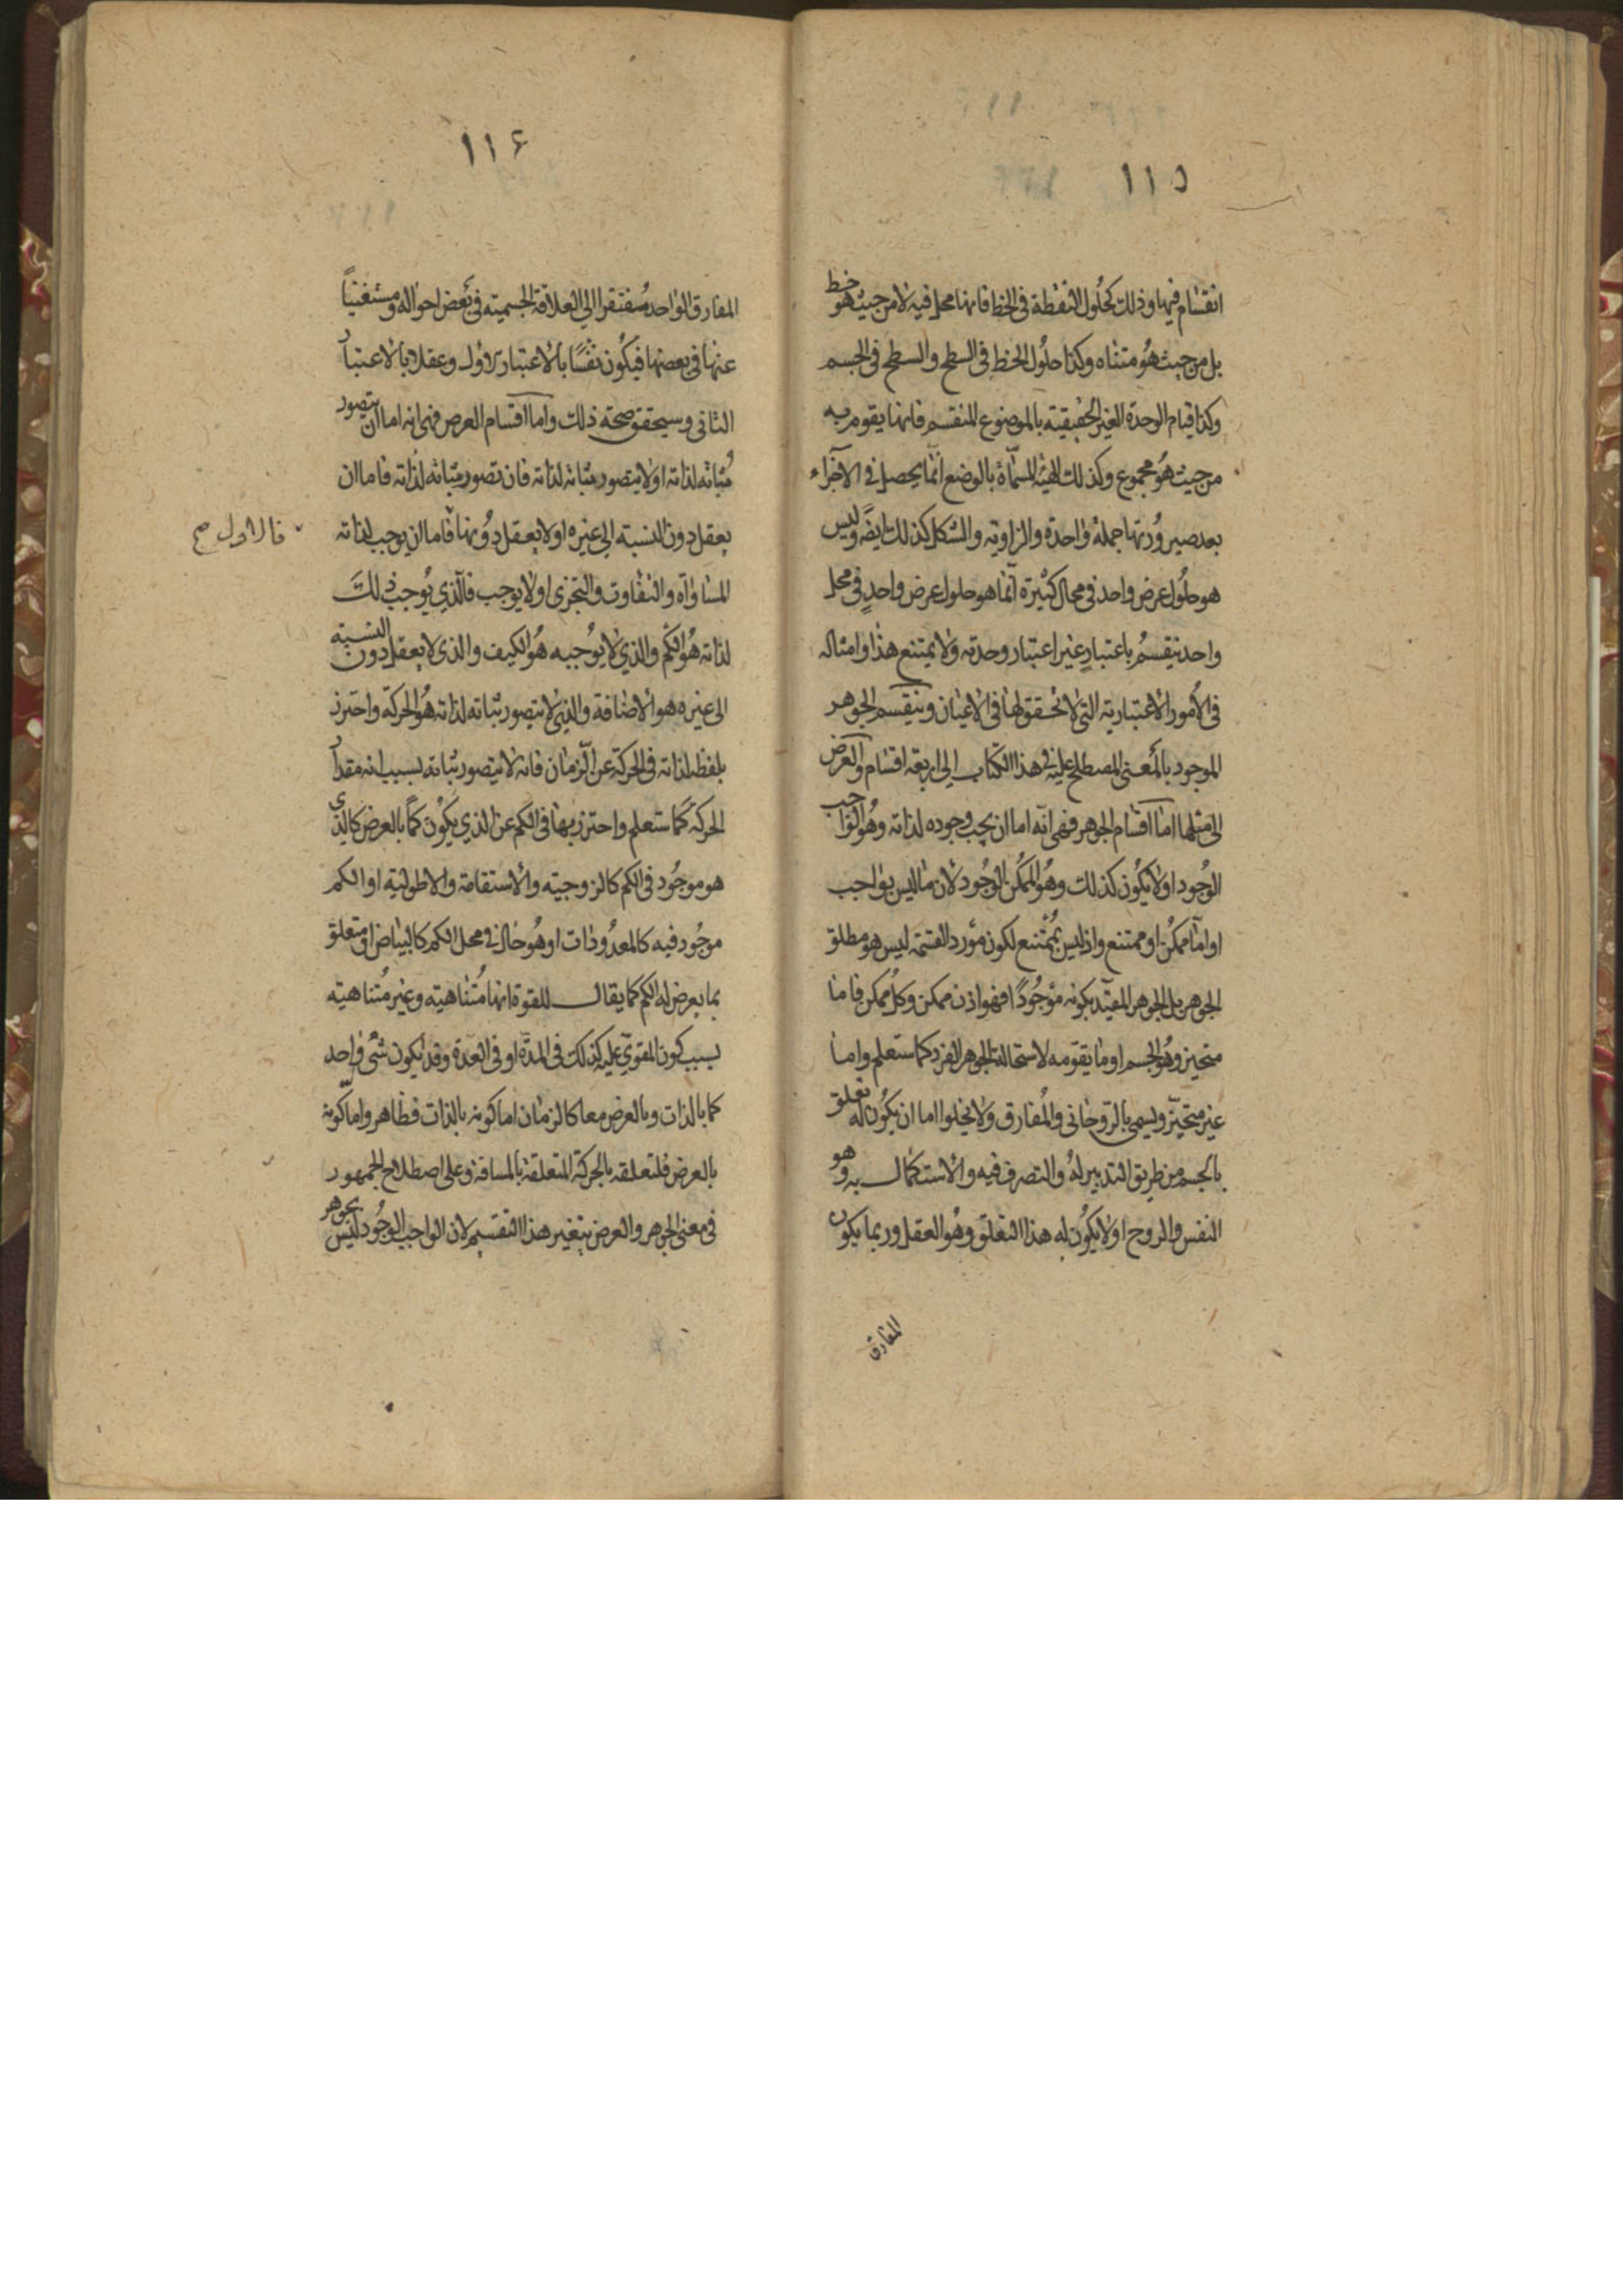 ١١٥
انقسام فيها وذلك كحلول النقطة في الخط فانها محل فيه لا من حيث هو خط
بل من حيث هو متناه وكذا حلول الخط في السطح والسطح في الجسم
وكذا قيام الوحدة الغير الحقيقية بالموضوع المنقسم فانها يقوم به
من حيث هو مجموع وكذلك الهيئة المسماة بالوضع انما يحصل في الاجزاء
بعد صيرورتها جملة واحدة والزاوية والشكل كذلك ايضا وليس
هو حلول عرض واحد في محال كثيرة انما هو حلول عرض واحد في محل
واحد ينقسم باعتبار غير اعتبار وحدته ولا يمتنع هذا وامثاله
في الامور الاعتبارية التي لا تحقق لها في الاعيان وينقسم الجوهر
الموجود بالمعنى المصطلح عليه في هذا الكتاب الى اربعة اقسام والعرض
الى مثلها اما اقسام الجوهر فهي انه اما ان يجب وجوده لذاته وهو الواجب
الوجود او لا يكون كذلك وهو الممكن الوجود لان ما ليس بواجب
او اما ممكن او ممتنع واذ ليس بممتنع لكون مورد القسمة ليس هو مطلق
الجوهر بل الجوهر المقيد بكونه موجودا فهو اذن ممكن وكل ممكن فاما
متحيز وهو الجسم او ما يقومه لاستحالة الجوهر الفرد كما ستعلم واما
غير متحيز ويسمى بالروحاني والمفارق ولا يخلوا اما ان يكون له تعلق
بالجسم من طريق التدبير له والتصرف فيه والاستكمال به وهو
النفس والروح او لا يكون له هذا التعلق وهو العقل وربما يكون
المفارق
١١٤
المفارق الواحد مفتقرا الى العلاقة الجسمية في بعض احواله ومستغنيا
عنها في بعضها فيكون نفسا بالاعتبار الاول وعقلا بالاعتبار
الثاني وسيحقق صحة ذلك واما اقسام العرض فهي انه اما ان يتصور
ثباته لذاته او لا يتصور ثباته لذاته فان تصور ثباته لذاته فاما ان
يعقل دون النسبة الى غيره او لا يعقل دونها فاما ان يوجب لذاته
فالاول صح
المساواة والتفاوت والتجزى او لا يوجب فالذي يوجب ذلك
لذاته هو الكم والذي لا يوجبه هو الكيف والذي لا يعقل دون النسبة
الى غيره هو الاضافة والذي لا يتصور ثباته لذاته هو الحركة واحترز
بلفظ لذاته في الحركة عن الزمان فانه لا يتصور ثباته بسبب انه مقدار
الحركة كما ستعلم واحترز بها في الكم عن الذي يكون كما بالعرض كالذي
هو موجود في الكم كالزوجية والاستقامة والاطولية او الكم
موجود فيه كالمعدودات او هو حال في محل الكم كالبياض او متعلق
بما يعرض له الكم كما يقال للقوة انها متناهية وغير متناهية
بسبب كون المقوي عليه كذلك في المدة او في العدة وقد يكون شئ واحد
كما بالذات وبالعرض معا كالزمان اما كونه بالذات فظاهر واما كونه
بالعرض فلتعلقه بالحركة المتعلقة بالمسافة وعلى اصطلاح الجمهور
في معنى الجوهر والعرض يتغير هذا التقسيم لان الواجب الوجود ليس بجوهر